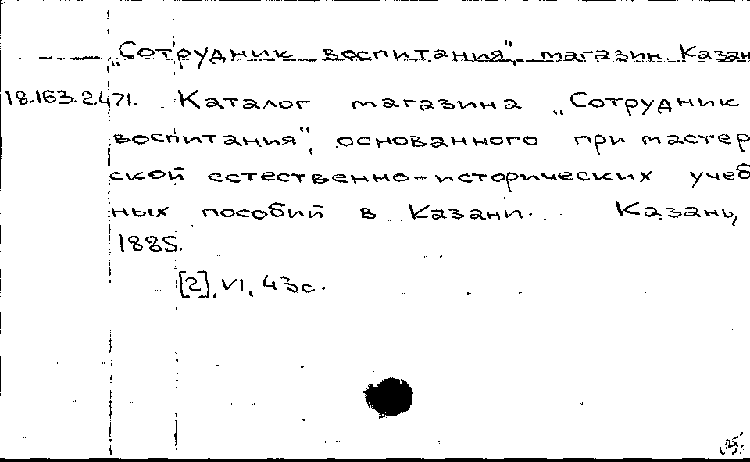 „Сотрудник воспитания", магазин. Казан
18.163.2.471. Каталог магазина „Сотрудник
воспитания", основанного при мастер
ской естественно-исторических учеб
ных пособий в Казани. Казань,
1885.
[2], VI, 43 с.